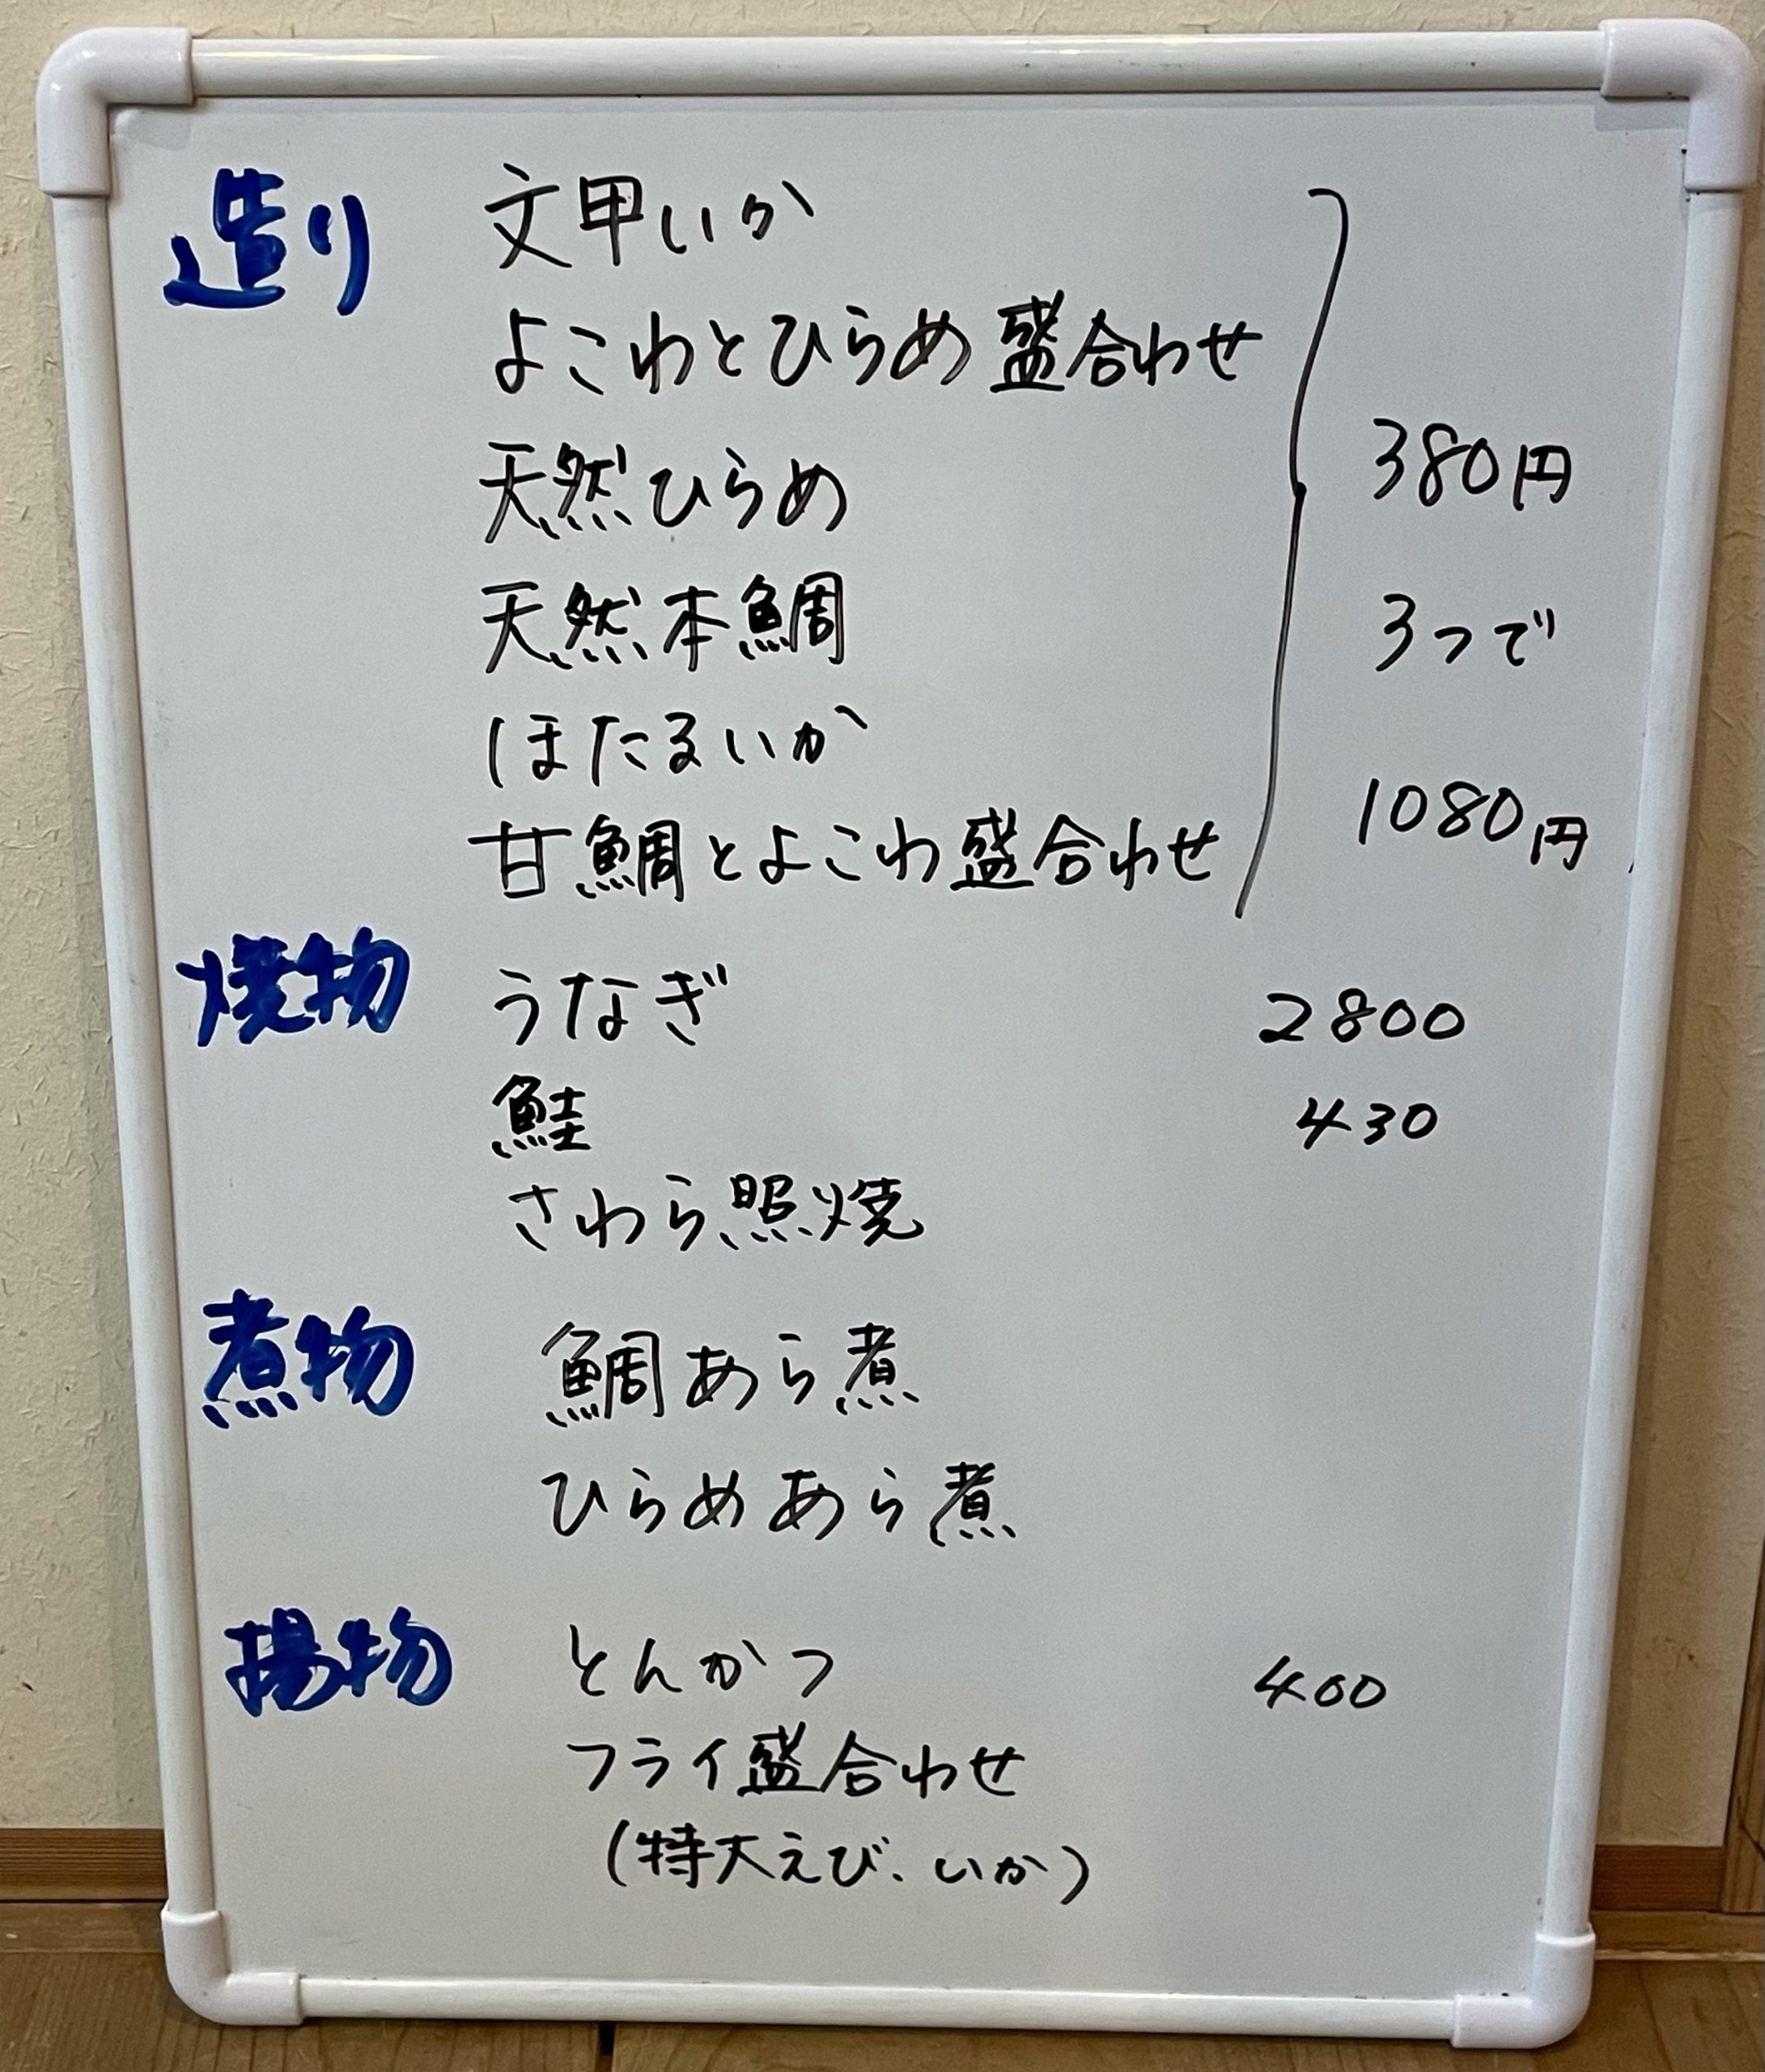 造り 文甲いか
よこわとひらめ盛合わせ
天然ひらめ 380円
天然本鯛 3つで
ほたるいか
甘鯛とよこわ盛合わせ 1080円
焼物 うなぎ 2800
鮭 430
さわら照焼
煮物 鯛あら煮
ひらめあら煮
揚物 とんかつ 400
フライ盛合わせ
(特大えび、いか)